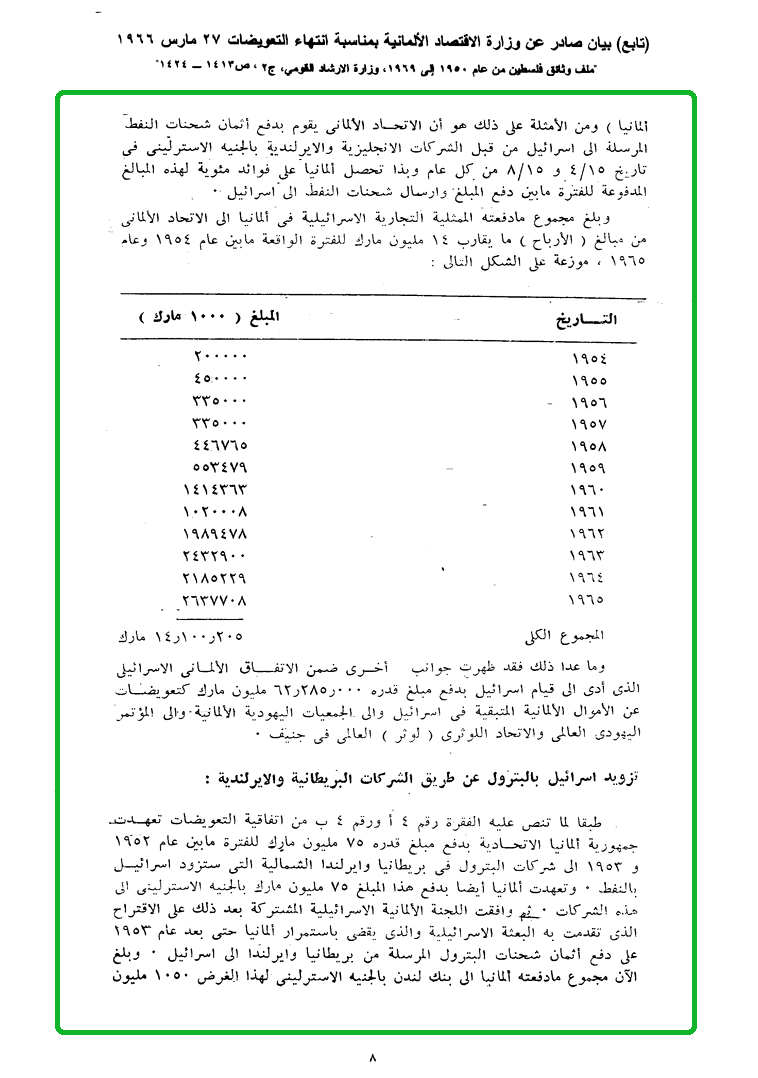 (تابع) بيان صادر عن وزارة الاقتصاد الألمانية بمناسبة انتهاء التعويضات ٢٧ مارس ١٩٦٦
"ملف وثائق فلسطين من عام ١٩٥٠ إلى ١٩٦٩، وزارة الارشاد القومي، ج٢ ، ص١٤١٣ ــ ١٤٢٤"
ألمانيا ) ومن الأمثلة على ذلك هو أن الاتحاد الألمانى يقوم بدفع أثمان شحنات النفط
المرسلة الى اسرائيل من قبل الشركات الانجليزية والايرلندية بالجنيه الاسترلينى فى
تاريخ ٤/١٥ و ٨/١٥ من كل عام وبذا تحصل ألمانيا على فوائد مئوية لهذه المبالغ
المدفوعة للفترة مابين دفع المبلغ وارسال شحنات النفط الى اسرائيل ٠
وبلغ مجموع مادفعته الممثلية التجارية الاسرائيلية فى ألمانيا الى الاتحاد الألمانى
من مبالغ ( الأرباح ) ما يقارب ١٤ مليون مارك للفترة الواقعة مابين عام ١٩٥٤ وعام
١٩٦٥ ، موزعة على الشكل التالى :
التـــاريخ المبلغ ( ١٠٠٠ مارك )
١٩٥٤ ٢٠٠٠٠٠
١٩٥٥ ٤٥٠٠٠٠
١٩٥٦ ٣٣٥٠٠٠
١٩٥٧ ٣٣٥٠٠٠
١٩٥٨ ٤٤٦٧٦٥
١٩٥٩ ٥٥٣٤٧٩
١٩٦٠ ١٤١٤٣٦٣
١٩٦١ ١٠٢٠٠٠٨
١٩٦٢ ١٩٨٩٤٧٨
١٩٦٣ ٢٤٣٢٩٠٠
١٩٦٤ ٢١٨٥٢٢٩
١٩٦٥ ٢٦٣٧٧٠٨
المجموع الكلى ٢٠٥ر١٠٠ر١٤ مارك
وما عدا ذلك فقد ظهرت جوانب أخرى ضمن الاتفـاق الألمانى الاسرائيلى
الذى أدى الى قيام اسرائيل بدفع مبلغ قدره ٠٠٠ر٢٨٥ر٦٢ مليون مارك كتعويضـات
عن الأموال الألمانية المتبقية فى اسرائيل والى الجمعيات اليهودية الألمانية والى المؤتمر
اليهودى العالمى والاتحاد اللوثرى ( لوثر ) العالمى فى جنيف ٠
تزويد اسرائيل بالبترول عن طريق الشركات البريطانية والايرلندية :
طبقا لما تنص عليه الفقرة رقم ٤ أ ورقم ٤ ب من اتفاقية التعويضات تعهـدت
جمهورية ألمانيا الاتحادية بدفع مبلغ قدره ٧٥ مليون مارك للفترة مابين عام ١٩٥٢
و ١٩٥٣ الى شركات البترول فى بريطانيا وايرلندا الشمالية التى ستزود اسرائيـل
بالنفط ٠ وتعهدت ألمانيا أيضا بدفع هذا المبلغ ٧٥ مليون مارك بالجنيه الاسترلينى الى
هذه الشركات ٠ ثم وافقت اللجنة الألمانية الاسرائيلية المشتركة بعد ذلك على الاقتراح
الذى تقدمت به البعثة الاسرائيلية والذى يقضى باستمرار ألمانيا حتى بعد عام ١٩٥٣
على دفع أثمان شحنات البترول المرسلة من بريطانيا وايرلندا الى اسرائيل ٠ وبلغ
الآن مجموع مادفعته ألمانيا الى بنك لندن بالجنيه الاسترلينى لهذا الغرض ١٠٥٠ مليون
٨